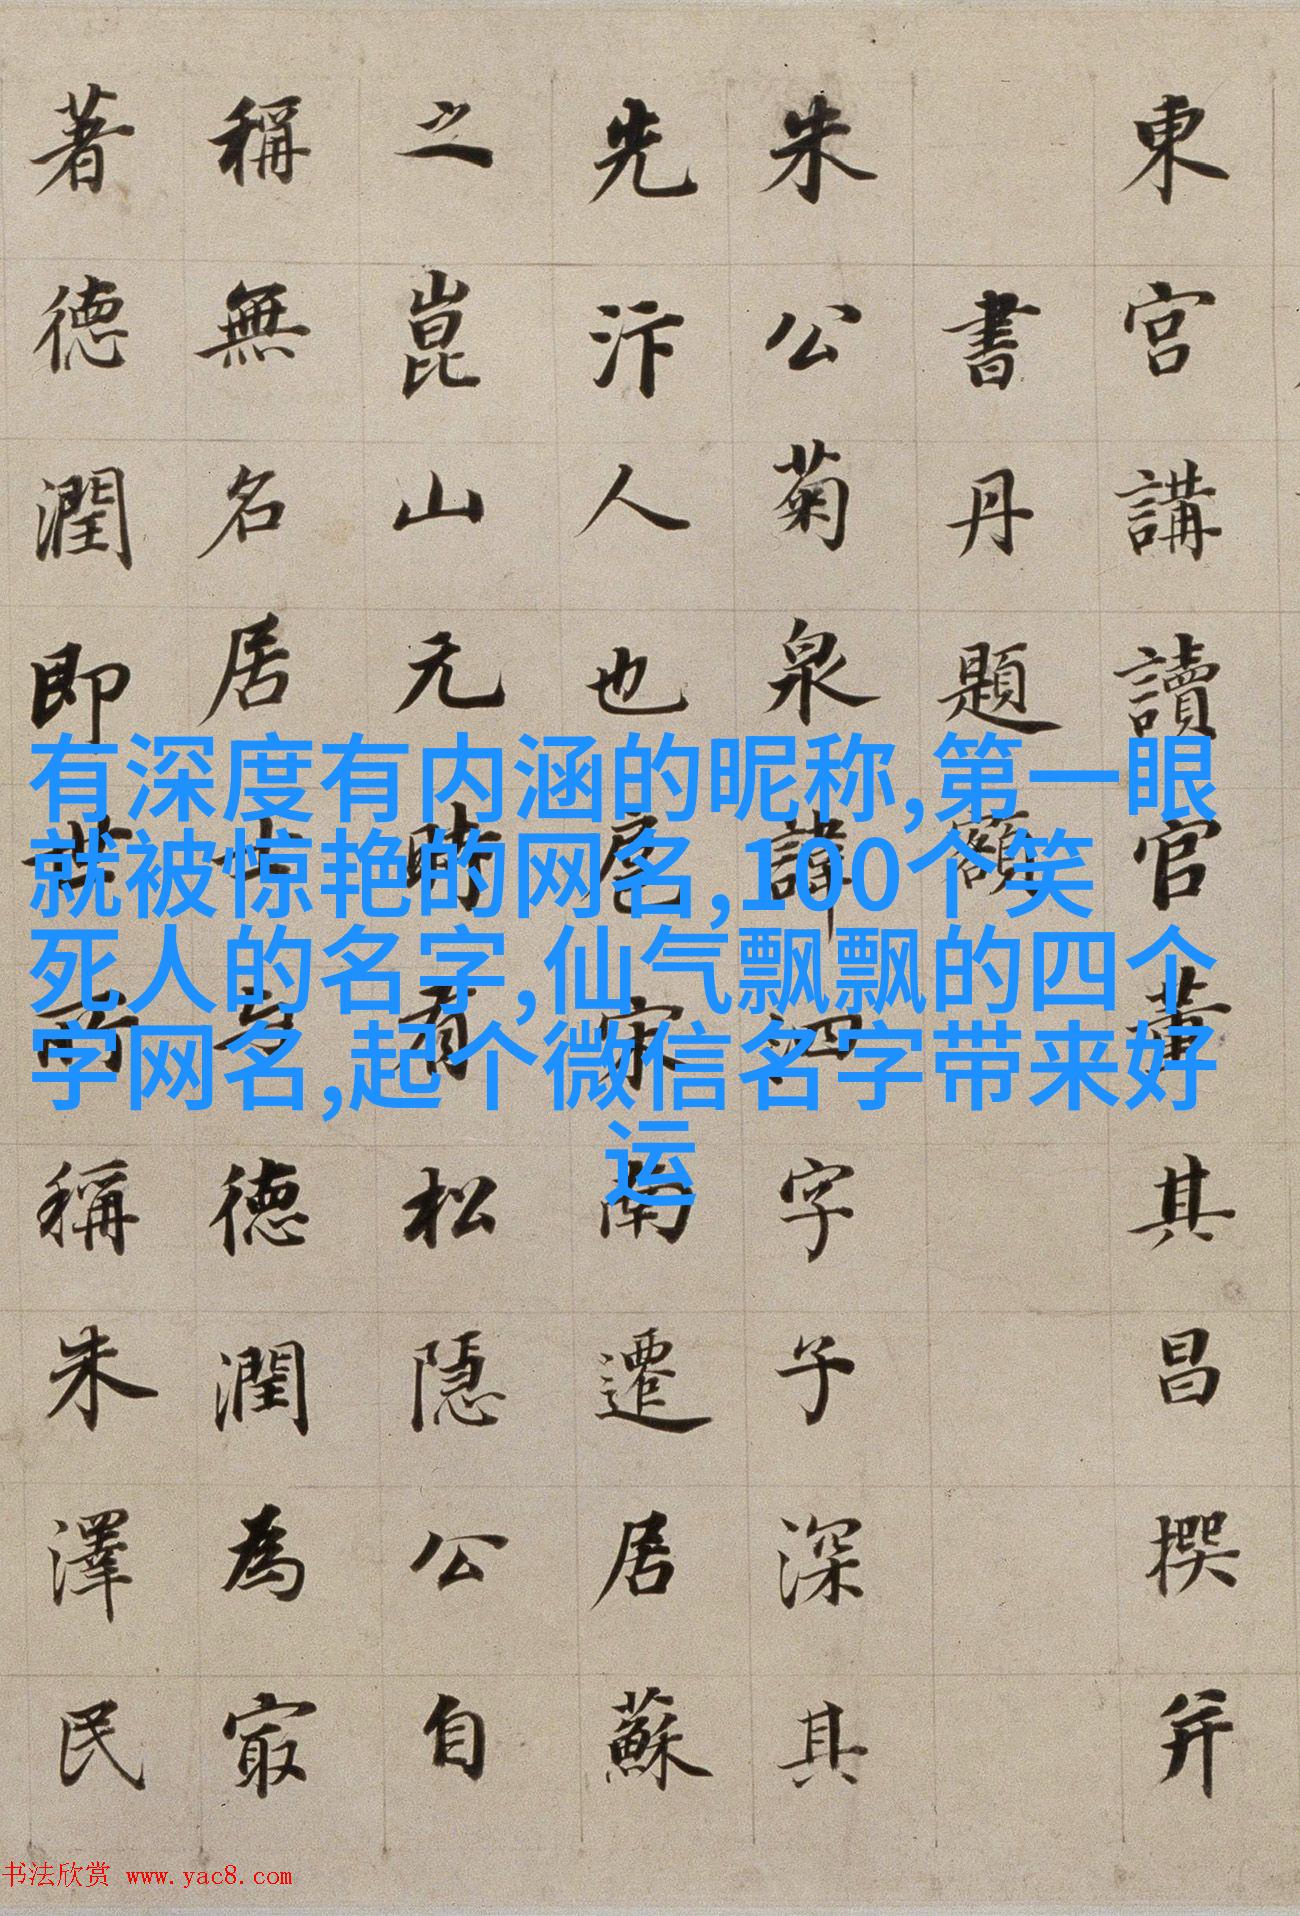 東宮講讀官董其昌撰并
書丹題額
朱公菊泉諱泗字子深其
先汴人也扈宋南遷居蘇
之崑山元時有松隱公自
稱無名居士与德潤為冣
著德潤即世所稱朱澤民
有深度有内涵的昵称,第一眼
就被惊艳的网名,100个笑
死人的名字,仙气飘飘的四个
字网名,起个微信名字带来好
运
书法欣赏 www.yac8.com